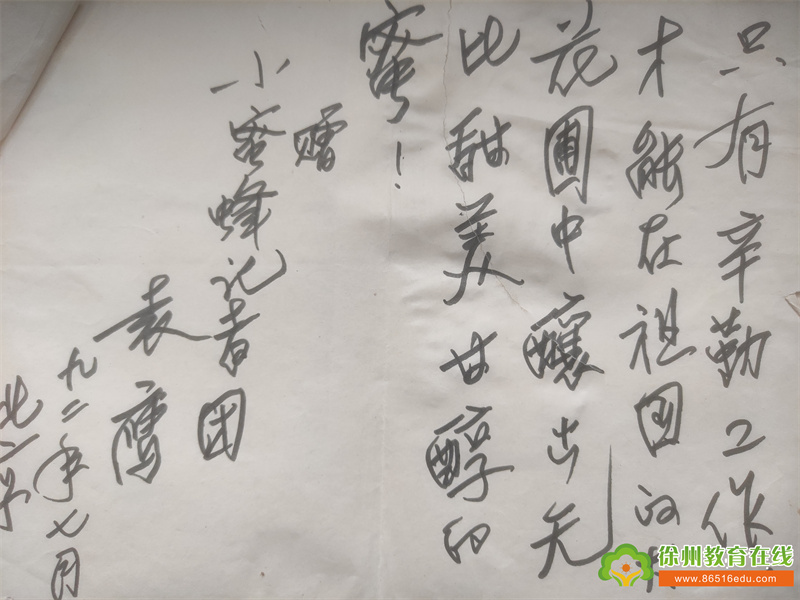 只有辛勤工作,
才能在祖国的
花圃中酿出无
比甜美甘醇的
蜜!
赠
小蜜蜂记者团
袁鹰
九二年七月
北京
徐州教育在线
www.86516edu.com